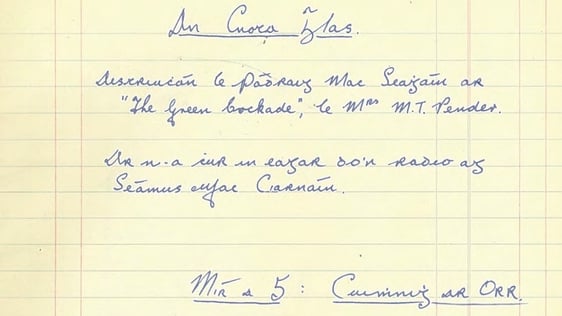 An Cnota Glas.
Aistriúcán le Pádraig Mac Seagáin ar
"The Green Cockade", le Mrs M.T. Pender.
Ar n-a cur in eagar do'n radio ag
Séamus Mac Ciarnáin.
Mír a 5: Cuimnig ar Orr.